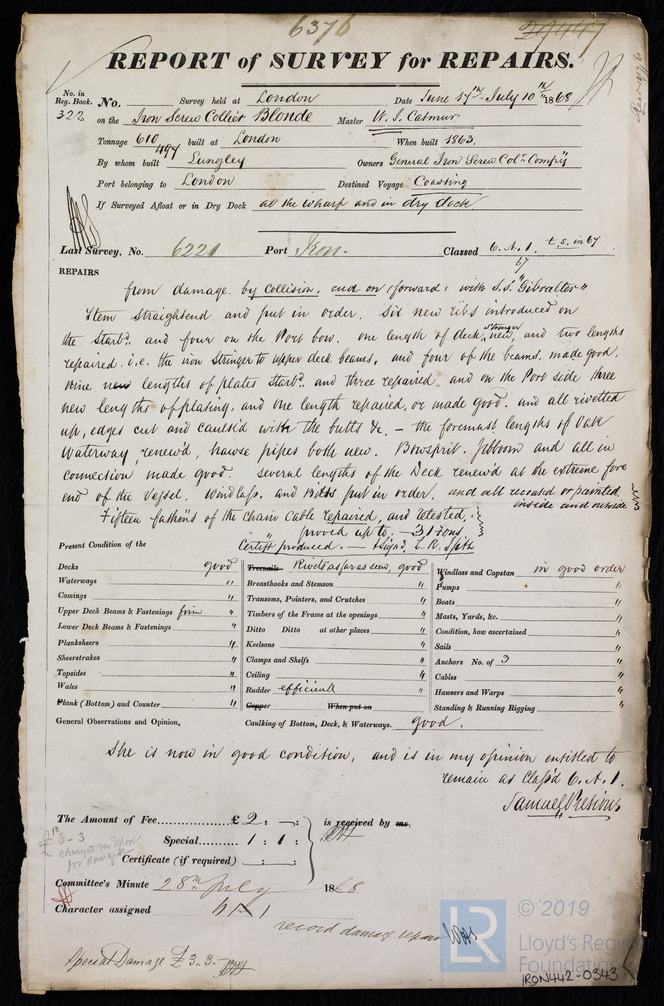 6376
REPORT of SURVEY for REPAIRS.
No. in Reg. Book. No. Survey held at London Date June 17th July 10th 1868
322 on the Iron Screw Collier Blonde Master W. J.
Tonnage 610 497 built at London When built 1863.
By whom built Lungley Owners General Iron Screw Colr. Compy
Port belonging to London Destined Voyage Coasting
If Surveyed Afloat or in Dry Dock at the wharf and in dry dock
Last Survey, No. 6221 Port Iron. Classed 6. A. 1. t.s. in 67
67
REPAIRS
from damage by Collision, end on (forward) with S.S. "Gibralter"
Stem Straightend and put in order. Six new ribs introduced on
the Starbd. and four on the Port bow. one length of deck Stringer new, and two lengths
repaired. i.e. the iron Stringer to upper deck beams, and four of the beams made good.
nine new lengths of plates Starbd. and three repaired. and on the Port side three
new lengths of plating, and one length repaired, or made good. and all rivetted
up, edges cut and caulk'd with the butts &c. – the foremost lengths of Oak
Waterway renew'd, hawse pipes both new. Bowsprit. Jibboom and all in
connection made good. several lengths of the Deck renew'd at the extreme fore
end of the Vessel. Windlass. and Bitts put in order. and all recoated or painted
inside and outside
Fifteen fathoms of the chain Cable repaired, and retested,
proved up to – 31 Tons,
Certift produced. – Signd,
Present Condition of the
Decks good
Waterways "
Comings "
Upper Deck Beams & Fastenings Iron "
Lower Deck Beams & Fastenings "
Planksheers "
Sheerstrakes "
Topsides "
Wales "
Plank (Bottom) and Counter "
Treenails Rivets as far as seen, good
Breasthooks and Stemson "
Transoms, Pointers, and Crutches "
Timbers of the Frame at the openings "
Ditto Ditto at other places "
Keelsons "
Clamps and Shelfs "
Ceiling "
Rudder efficient "
Copper When put on
Windlass and Capstan in good order
Pumps "
Boats "
Masts, Yards, &c. "
Condition, how ascertained "
Sails "
Anchors No. of 3 "
Cables "
Hawsers and Warps "
Standing & Running Rigging "
General Observations and Opinion, Caulking of Bottom, Deck, & Waterways. good.
She is now in good condition, and is in my opinion entitled to
remain as Class'd 6. A. 1.
Samuel Presious
The Amount of Fee £ 2 : – : is received by me.
Special 1 : 1 :
£ 3 – 3
for damage
Certificate (if required) : :
Committee's Minute 28th July 1868
Character assigned 6 A 1
record damage repair
Special Damage £ 3. 3. –
© 2019
LR
Lloyd's Register
Foundation
IRON442-0343